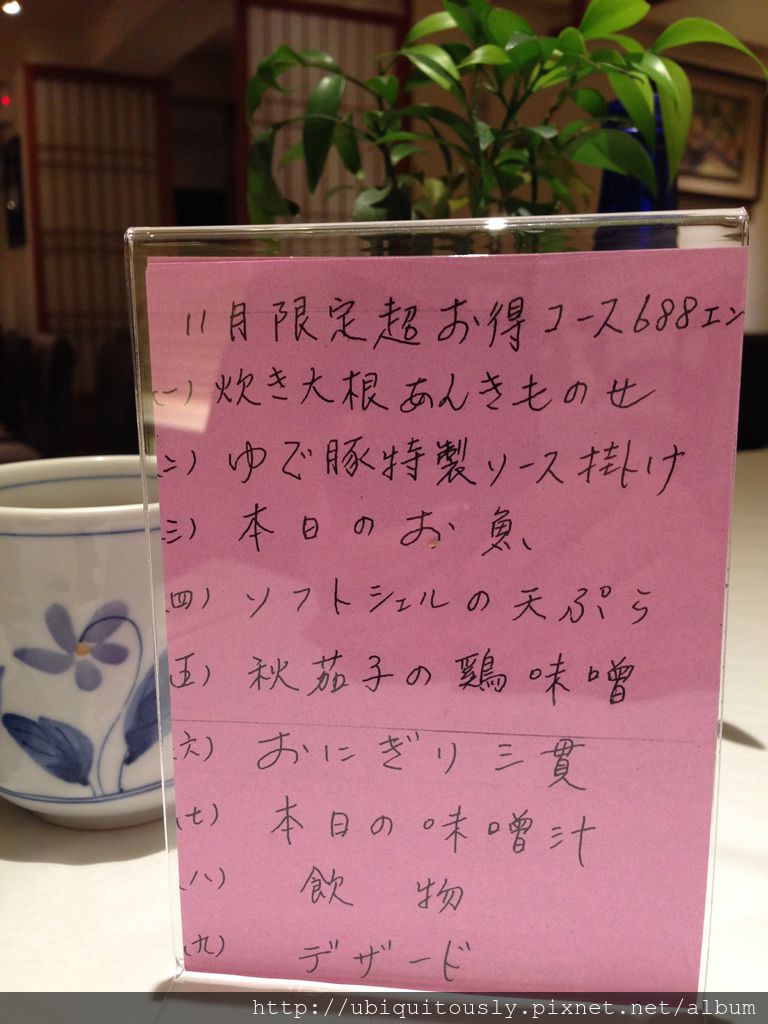 11月限定超お得コース688エン
(一) 炊き大根あんきものせ
(二) ゆで豚特製ソース掛け
(三) 本日のお魚
(四) ソフトシェルの天ぷら
(五) 秋茄子の鶏味噌
(六) おにぎり三貫
(七) 本日の味噌汁
(八) 飲物
(九) デザード
http://ubiquitously.pixnet.net/album